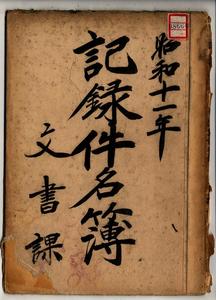 昭和十一年
記録件名簿
文書課